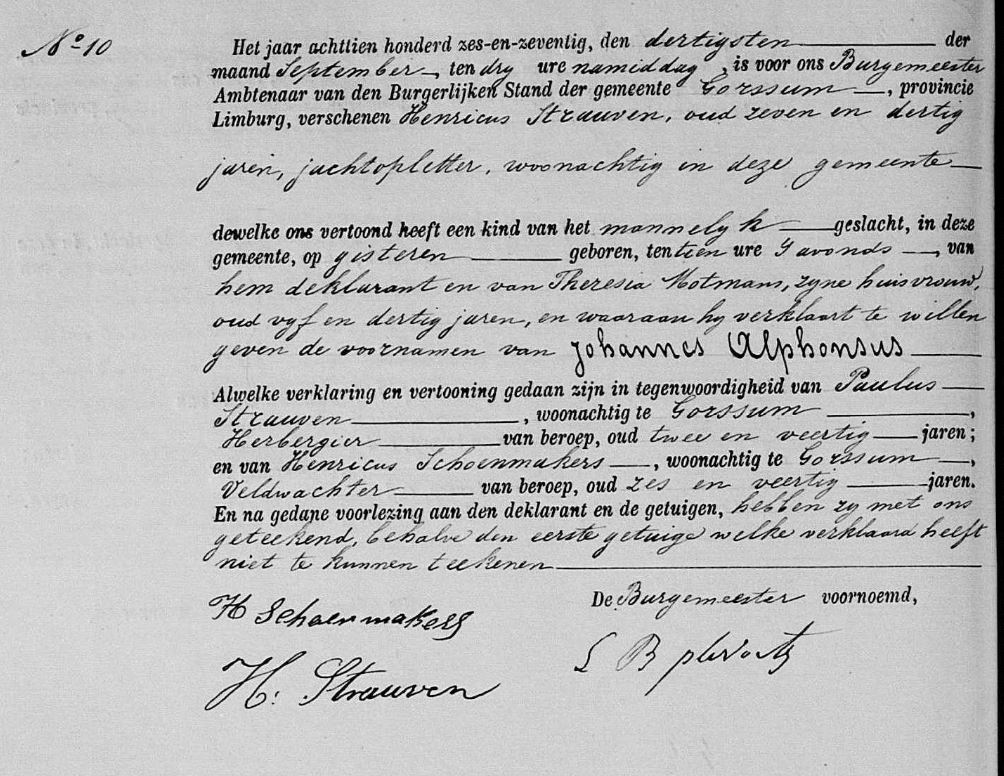 No 10
Het jaar achttien honderd zes-en-zeventig, den dertigsten der
maand September, ten dry ure namiddag, is voor ons Burgemeester
Ambtenaar van den Burgerlijken Stand der gemeente Gorssum, provincie
Limburg, verschenen Henricus Strauven, oud zeven en dertig
jaren, jachtopletter, woonachtig in deze gemeente
dewelke ons vertoond heeft een kind van het mannelyk geslacht, in deze
gemeente, op gisteren geboren, ten tien ure s'avonds, van
hem deklarant en van Theresia Motmans, zyne huisvrouw,
oud vyf en dertig jaren, en waaraan hy verklaart te willen
geven de voornamen van Johannes Alphonsus
Alwelke verklaring en vertooning gedaan zijn in tegenwoordigheid van Paulus
Strauven, woonachtig te Gorssum,
Herbergier van beroep, oud twee en veertig jaren;
en van Henricus Schoenmakers, woonachtig te Gorssum,
Veldwachter van beroep, oud zes en veertig jaren.
En na gedane voorlezing aan den deklarant en de getuigen, hebben zy met ons
geteekend, behalve den eerste getuige welke verklaard heeft
niet te kunnen teekenen
De Burgemeester voornoemd,
H Schoenmakers
H. Strauven